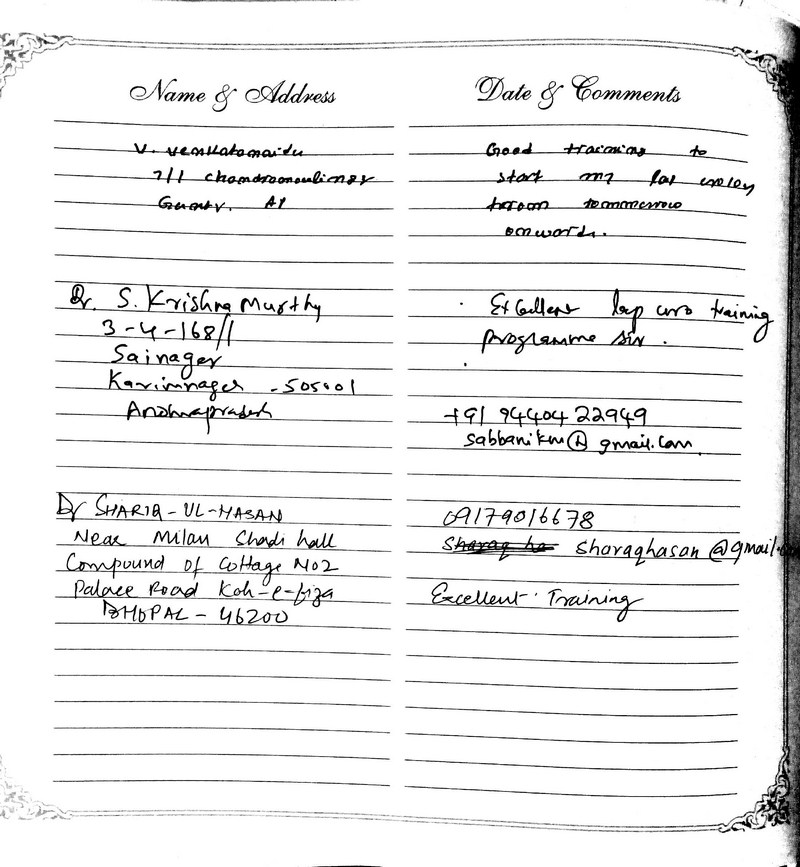 Name & Address
V. Venkatanaidu
7/1 Chandramoulinagar
Guntur. AP
Dr. S. Krishna Murthy
3-4-168/1
Sainager
Karimnager - 505001
Andhrapradesh
Dr SHARIQ-UL-HASAN
Near Milan Shadi hall
Compound of Cottage No2
Palace Road Koh-e-fiza
BHOPAL - 46200
Date & Comments
Good training to
start my lap
tommorrow
onwords.
Excellent lap uro training
programme sir.
+91 94404 22949
sabbanikm@gmail.com
09179016678
sharaqhasan@gmail.
Excellent Training